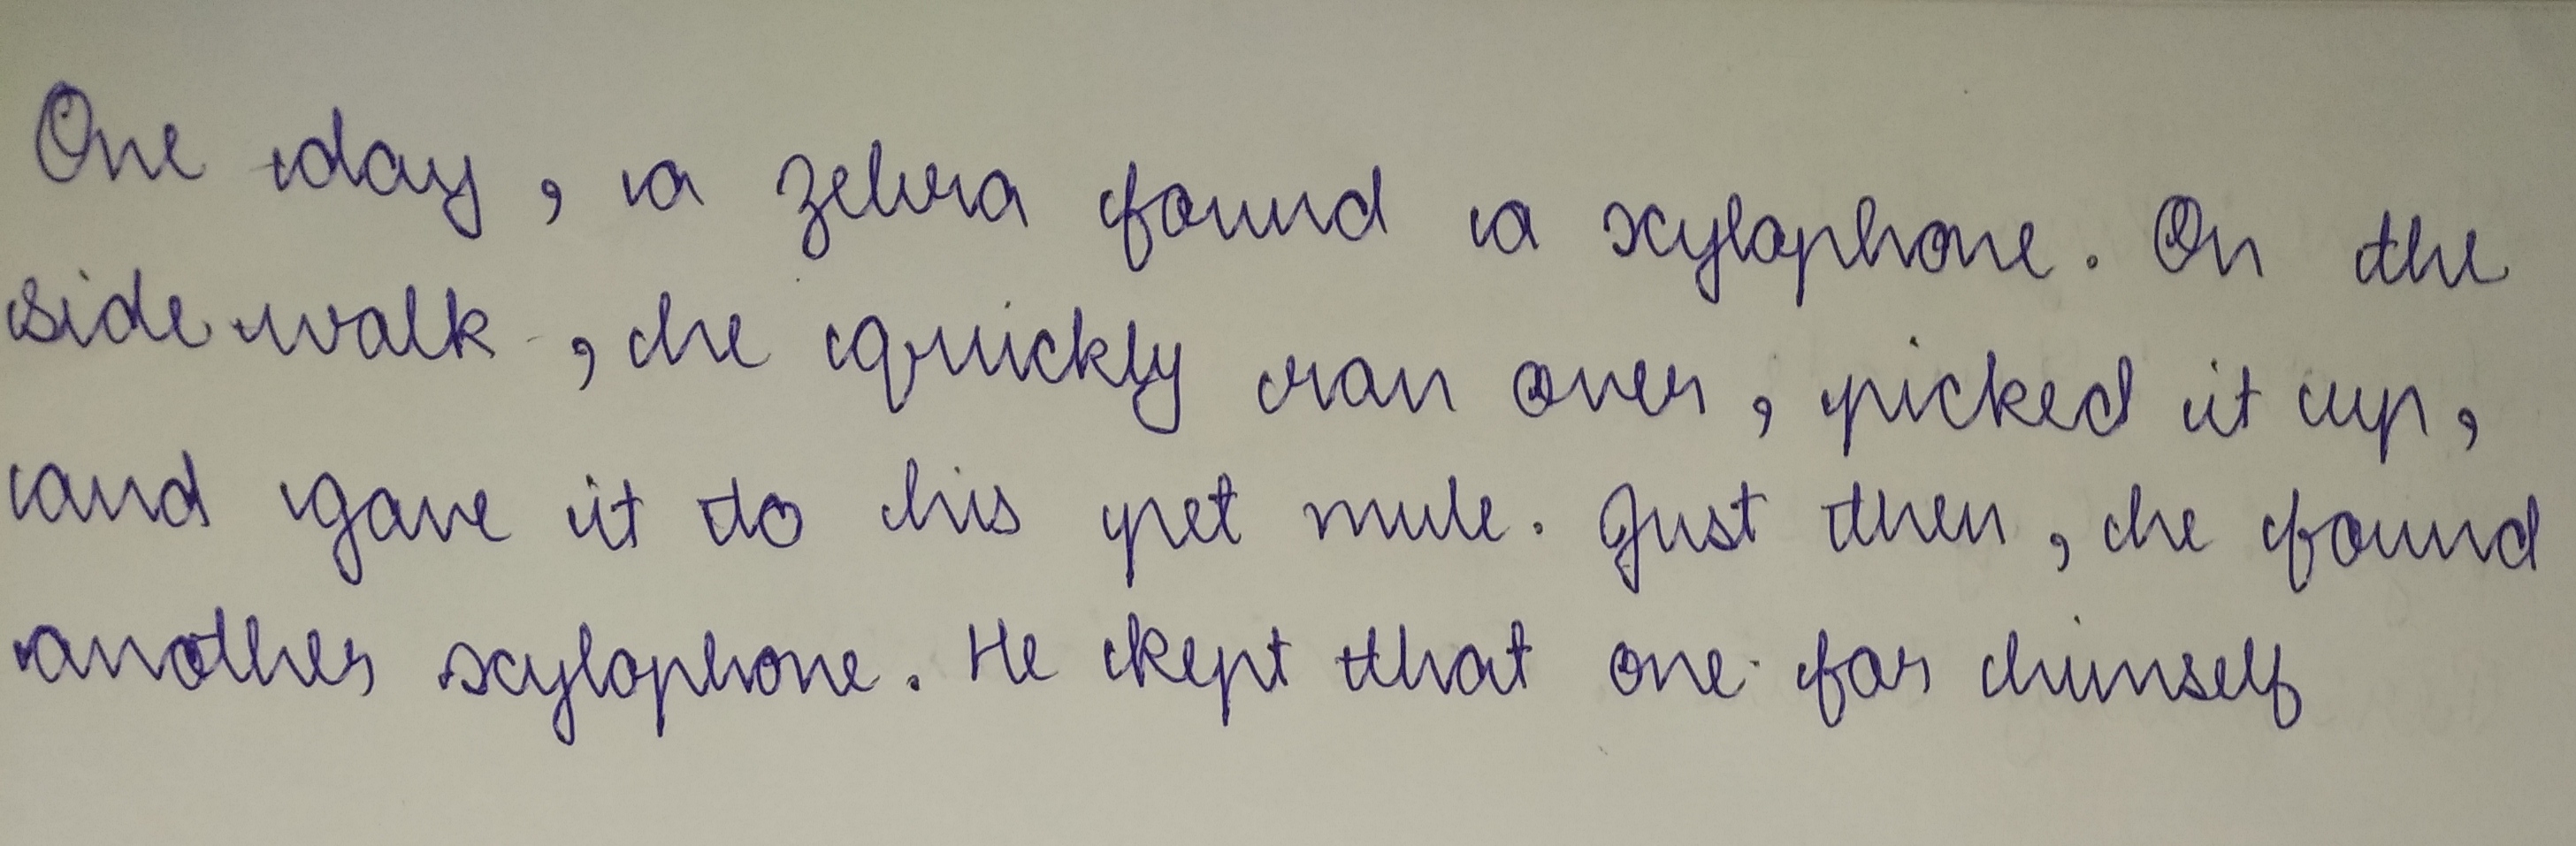 One day, a zebra found a xylophone. On the
side walk, he quickly ran over, picked it up,
and gave it to his pet mule. Just then, he found
another xylophone. He kept that one for himself